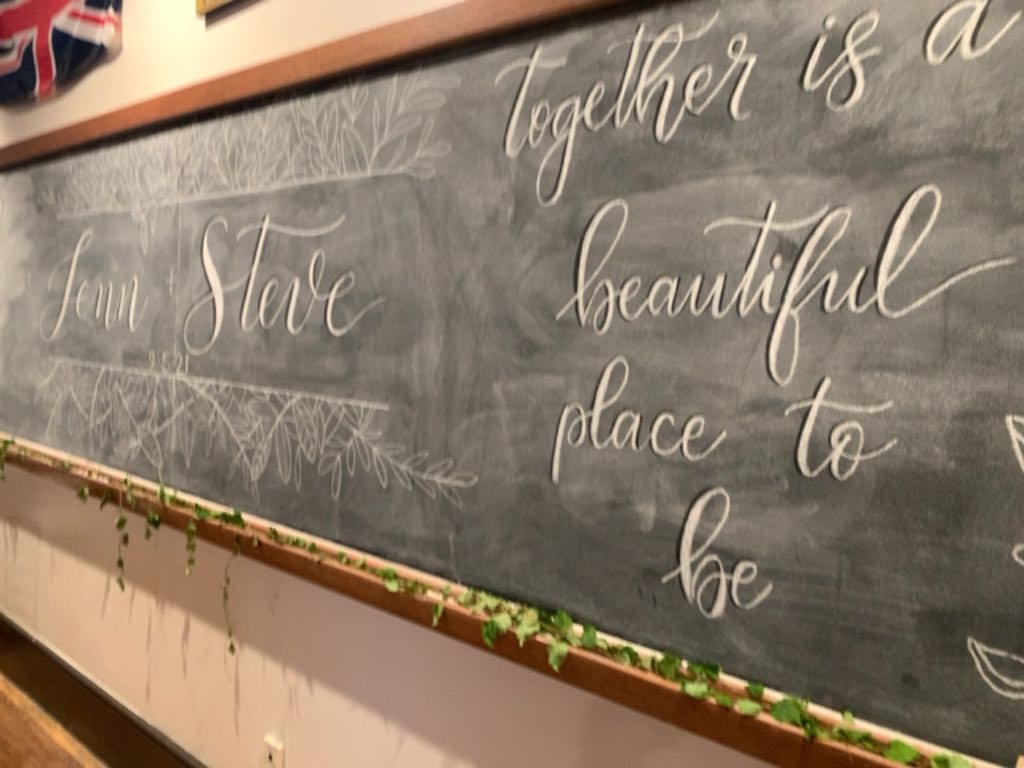 Jenn + Steve
9.5.21
together is a
beautiful
place to
be